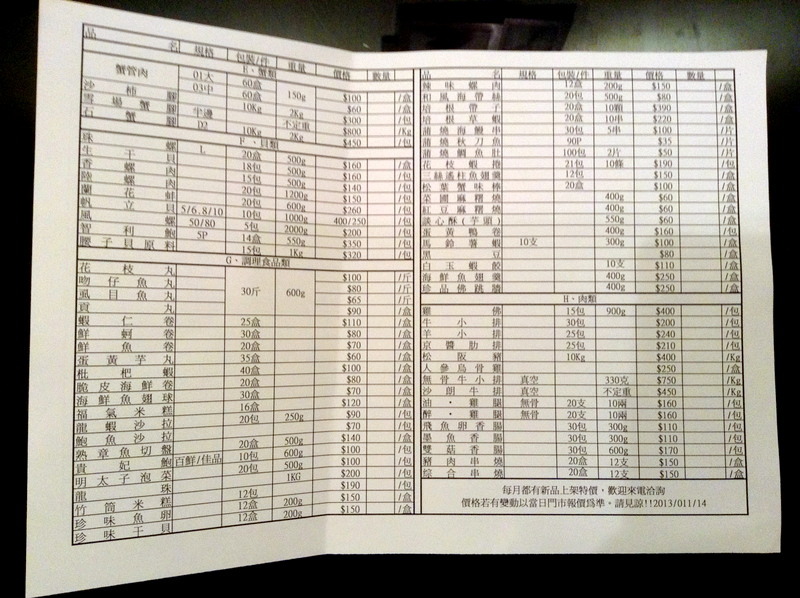 品名 規格 包裝/件 重量 價格 數量
E、蟹類
蟹管肉 01大 60盒 150g $100 /盒
03中 60盒 $60 /盒
10Kg $300 /包
雪場蟹腳 半邊 不定重 $800 /Kg
石蟹腳 D2 10Kg 2Kg $450 /包
F、貝類
珠螺 L 20盒 500g $160 /盒
生干貝 18包 500g $160
香螺肉 15包 500g $140 /包
陸螺肉 20包 1200g $150 /包
蘭花蚌 20包 600g $260 /包
帆立貝 5/6.8/10 10包 1000g 400/250 /包
風螺 50/80 5包 2000g $200 /包
智利鮑 5P 14盒 550g $350 /盒
腰子貝原料 15包 1Kg $320 /包
G、調理食品類
花枝丸 30斤 600g $100 /斤
吻仔魚丸 $80 /斤
虱目魚丸 $65 /斤
貢丸 $90
蝦仁卷 25盒 $110 /盒
鮮蚵卷 30盒 $80 /盒
鮮魚卷 20盒 $70 /盒
蛋黃芋丸 35盒 $60 /盒
枇杷蝦 40盒 $100 /盒
脆皮海鮮卷 20盒 $80 /盒
海鮮魚翅球 30盒 $70 /盒
福氣米糕 16盒 $120 /盒
龍蝦沙拉 20包 250g $90 /包
鮑魚沙拉 $70 /包
熟章魚切盤 20盒 500g $140 /盒
貴妃鮑 百鮮/佳品 10包 600g $100 /包
明太子泡菜 20包 500g $100 /包
龍珠 1KG $200 /包
竹筒米糕 12包 $190 /包
珍味魚卵 12盒 200g $150 /盒
珍味干貝 12盒 200g $150 /盒
品名 規格 包裝/件 重量 價格 數量
辣味螺肉 12盒 200g $150 /盒
和風海帶絲 20包 500g $80 /包
培根帶子 20盒 10顆 $390 /盒
培根草蝦 20盒 10串 $220 /盒
蒲燒海鰻串 30包 5串 $100 /包
蒲燒秋刀魚 90P $35 /片
蒲燒鯛魚肚 100包 2片 $50 /片
花枝蝦捲 21包 10條 $190 /包
三絲瑤柱魚翅羹 12包 $150 /包
松葉蟹味棒 20盒 $100 /盒
菜圃麻糬燒 400g $60 /盒
紅豆麻糬燒 400g $60 /盒
談心酥(芋頭) 550g $60 /盒
蛋黃鴨卷 400g $160 /包
馬鈴薯蝦 10支 300g $100 /盒
黑豆 $80 /盒
白玉蝦餃 10支 $110 /盒
海鮮魚翅羹 400g $250 /盒
珍品佛跳牆 400g $250 /盒
H、肉類
雞佛 15包 900g $400 /包
牛小排 30包 $200 /包
羊小排 25包 $240 /包
京醬肋排 25包 $210 /包
松阪豬 10Kg $400 /Kg
人參烏骨雞 $250 /盒
無骨牛小排 真空 330克 $750 /Kg
沙朗牛排 真空 不定重 $450 /Kg
油・雞腿 無骨 20支 10兩 $160 /包
醉・雞腿 無骨 20支 10兩 $160 /包
飛魚卵香腸 30包 300g $110 /包
墨魚香腸 30包 300g $110 /包
雙菇香腸 30包 600g $170 /包
豬肉串燒 20盒 12支 $150 /盒
綜合串燒 20盒 12支 $150 /盒
每月都有新品上架特價，歡迎來電洽詢
價格若有變動以當日門市報價為準。請見諒!!2013/011/14